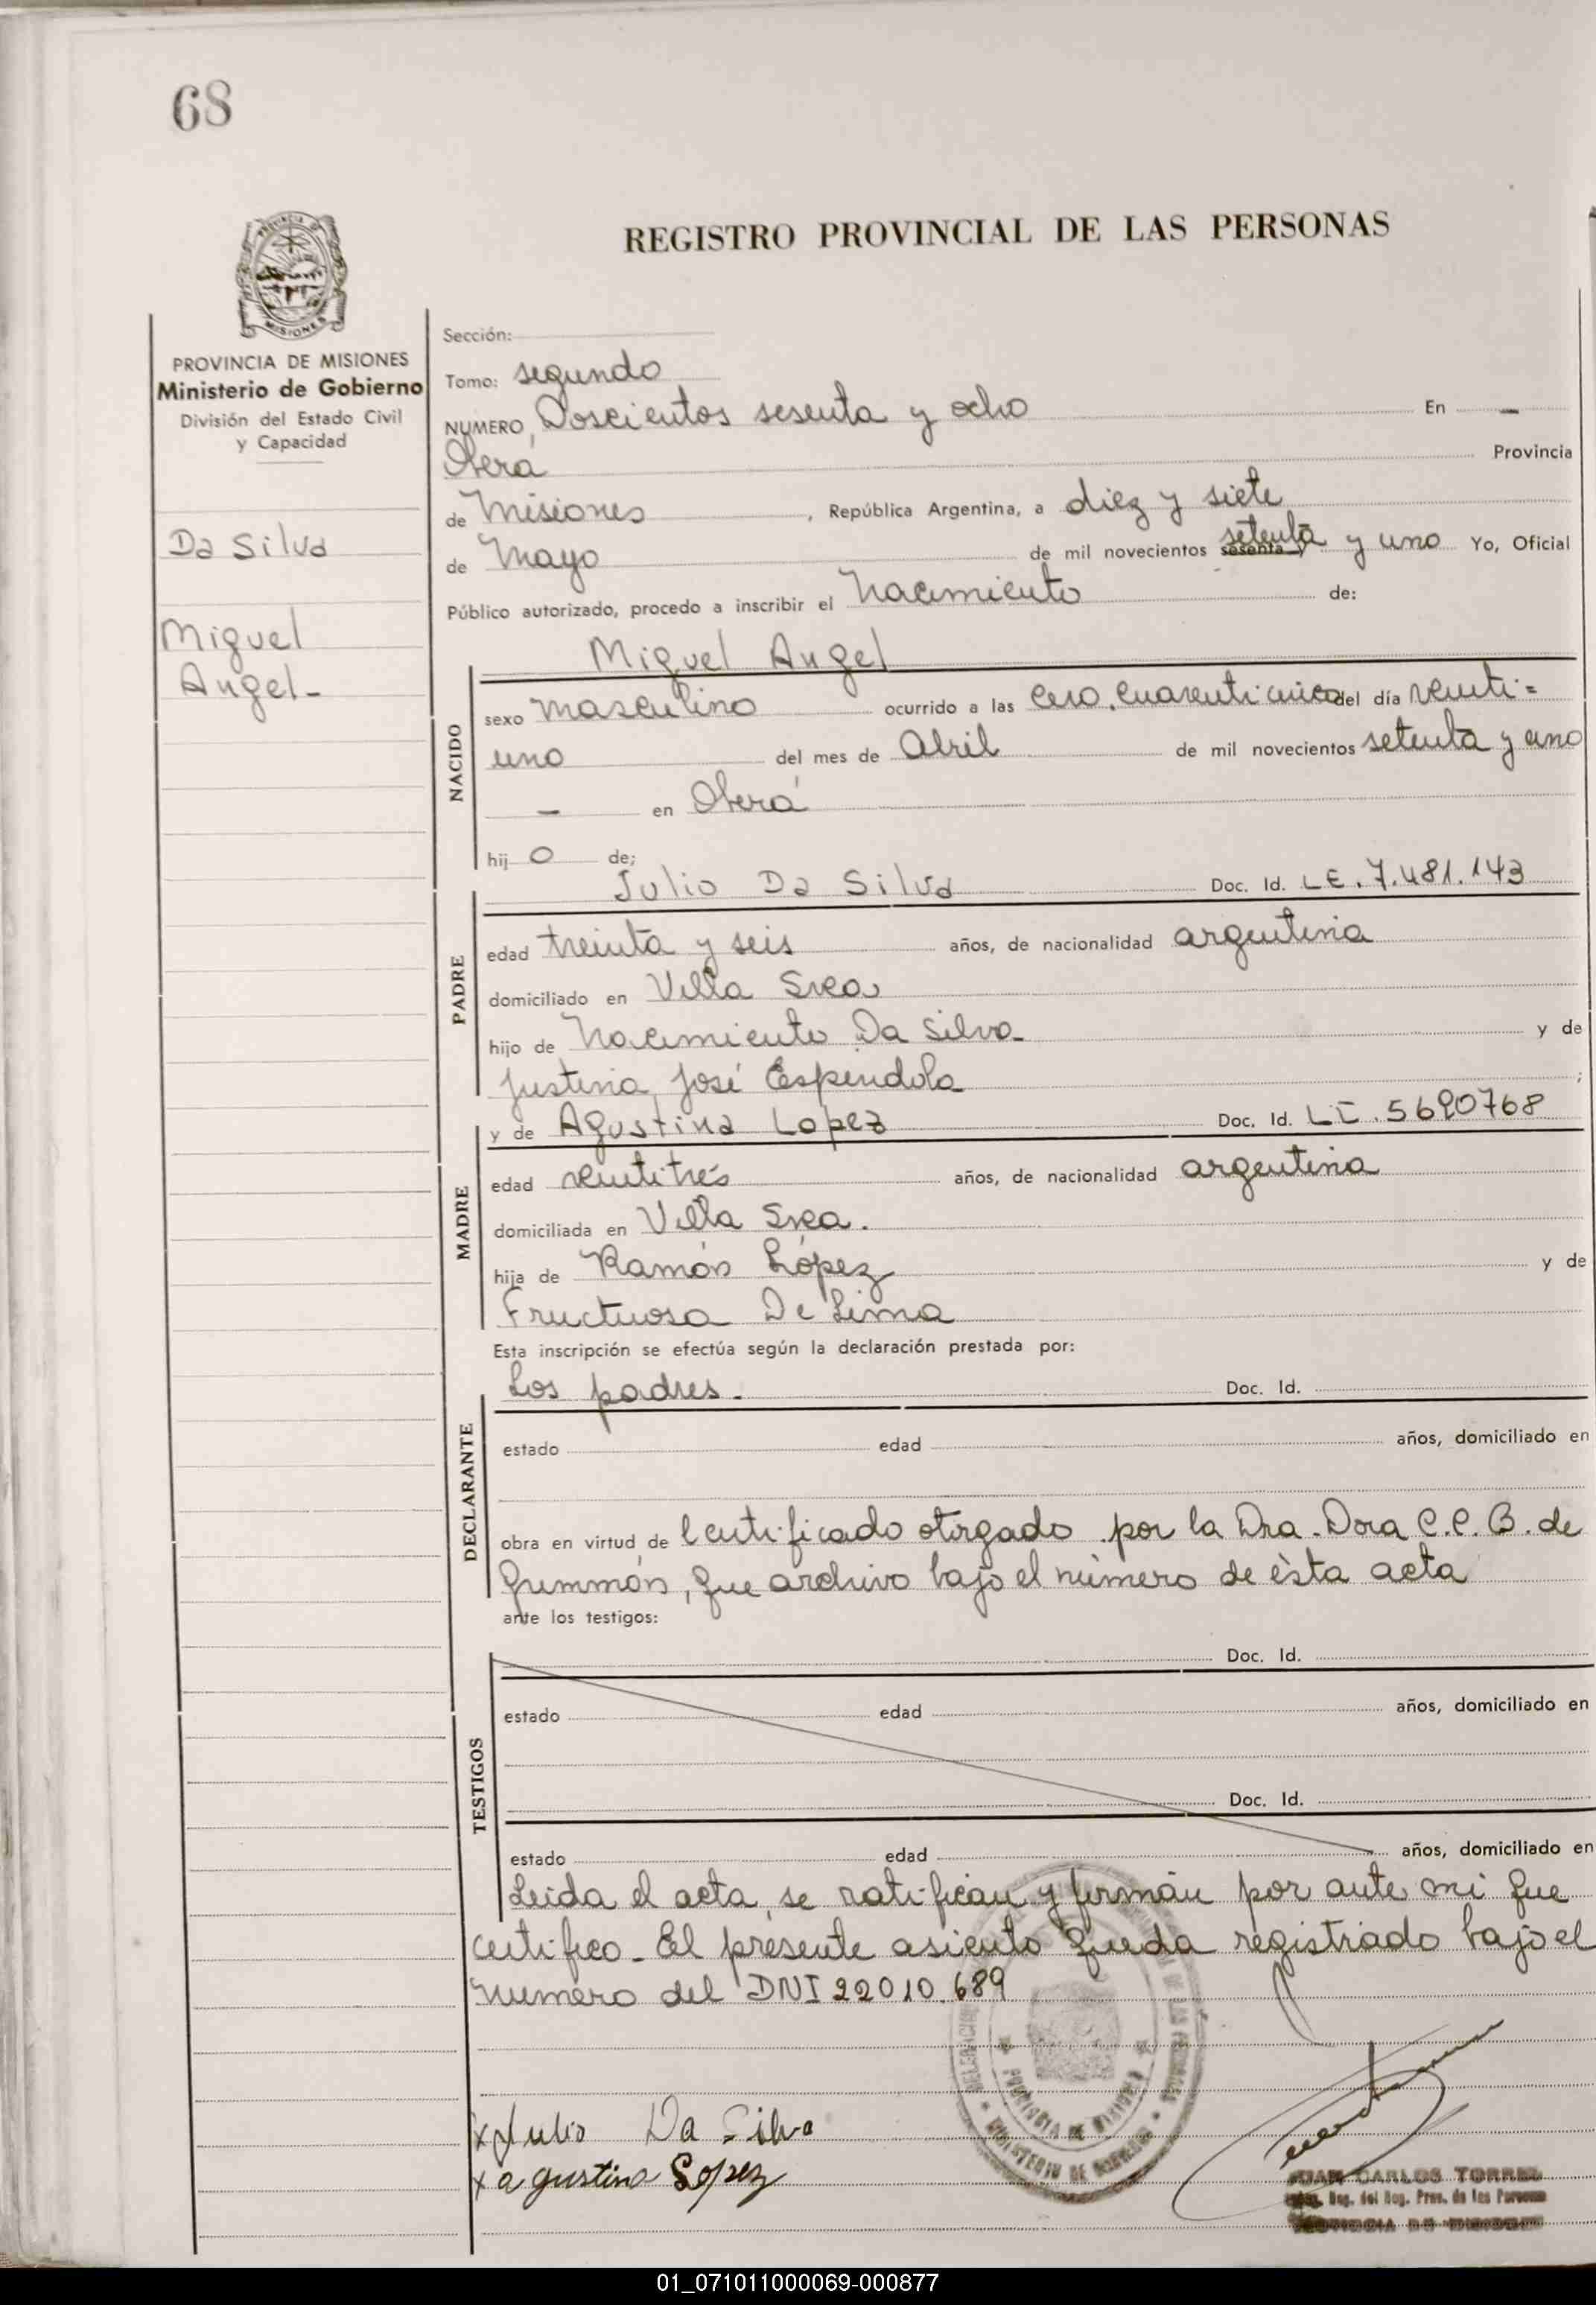 68
REGISTRO PROVINCIAL DE LAS PERSONAS
MISIONES
PROVINCIA DE MISIONES
Ministerio de Gobierno
División del Estado Civil
y Capacidad
Da Silva
Miguel
Angel-
Sección:
Tomo: segundo
NUMERO, Doscientos sesenta y ocho En —
Oberá Provincia
de Misiones, República Argentina, a diez y siete
de Mayo de mil novecientos sesenta y setenta y uno Yo, Oficial
Público autorizado, procedo a inscribir el Nacimiento de:
Miguel Angel
NACIDO
sexo masculino ocurrido a las cero. cuarenticinco del día veinti=
uno del mes de Abril de mil novecientos setenta y uno
— en Oberá
hijo de;
PADRE
Julio Da Silva Doc. Id. LE. 7.481.143
edad treinta y seis años, de nacionalidad argentina
domiciliado en Villa Svea
hijo de Nacimiento Da Silva- y de
Justina José Espindola ;
MADRE
y de Agustina Lopez Doc. Id. LC. 5690768
edad veintitrés años, de nacionalidad argentina
domiciliada en Villa Svea.
hija de Ramón López y de
Fructuosa De Lima
Esta inscripción se efectúa según la declaración prestada por:
DECLARANTE
Los padres. Doc. Id.
estado edad años, domiciliado en
obra en virtud de Certificado otorgado por la Dra. Dora C.C. B. de
que archivo bajo el número de ésta acta
ante los testigos:
TESTIGOS
Doc. Id.
estado edad años, domiciliado en
Doc. Id.
estado edad años, domiciliado en
Leida el acta, se ratifican y firman por ante mi que
certifico- El presente asiento queda registrado bajo el
número del DNI 22010.689
PROVINCIA DE MISIONES
MINISTERIO DE GOBIERNO
x Julio Da Silva
x agustina Lopez
JUAN CARLOS TORRES
del Reg. Prov. de las Personas
PROVINCIA DE MISIONES
01_071011000069-000877